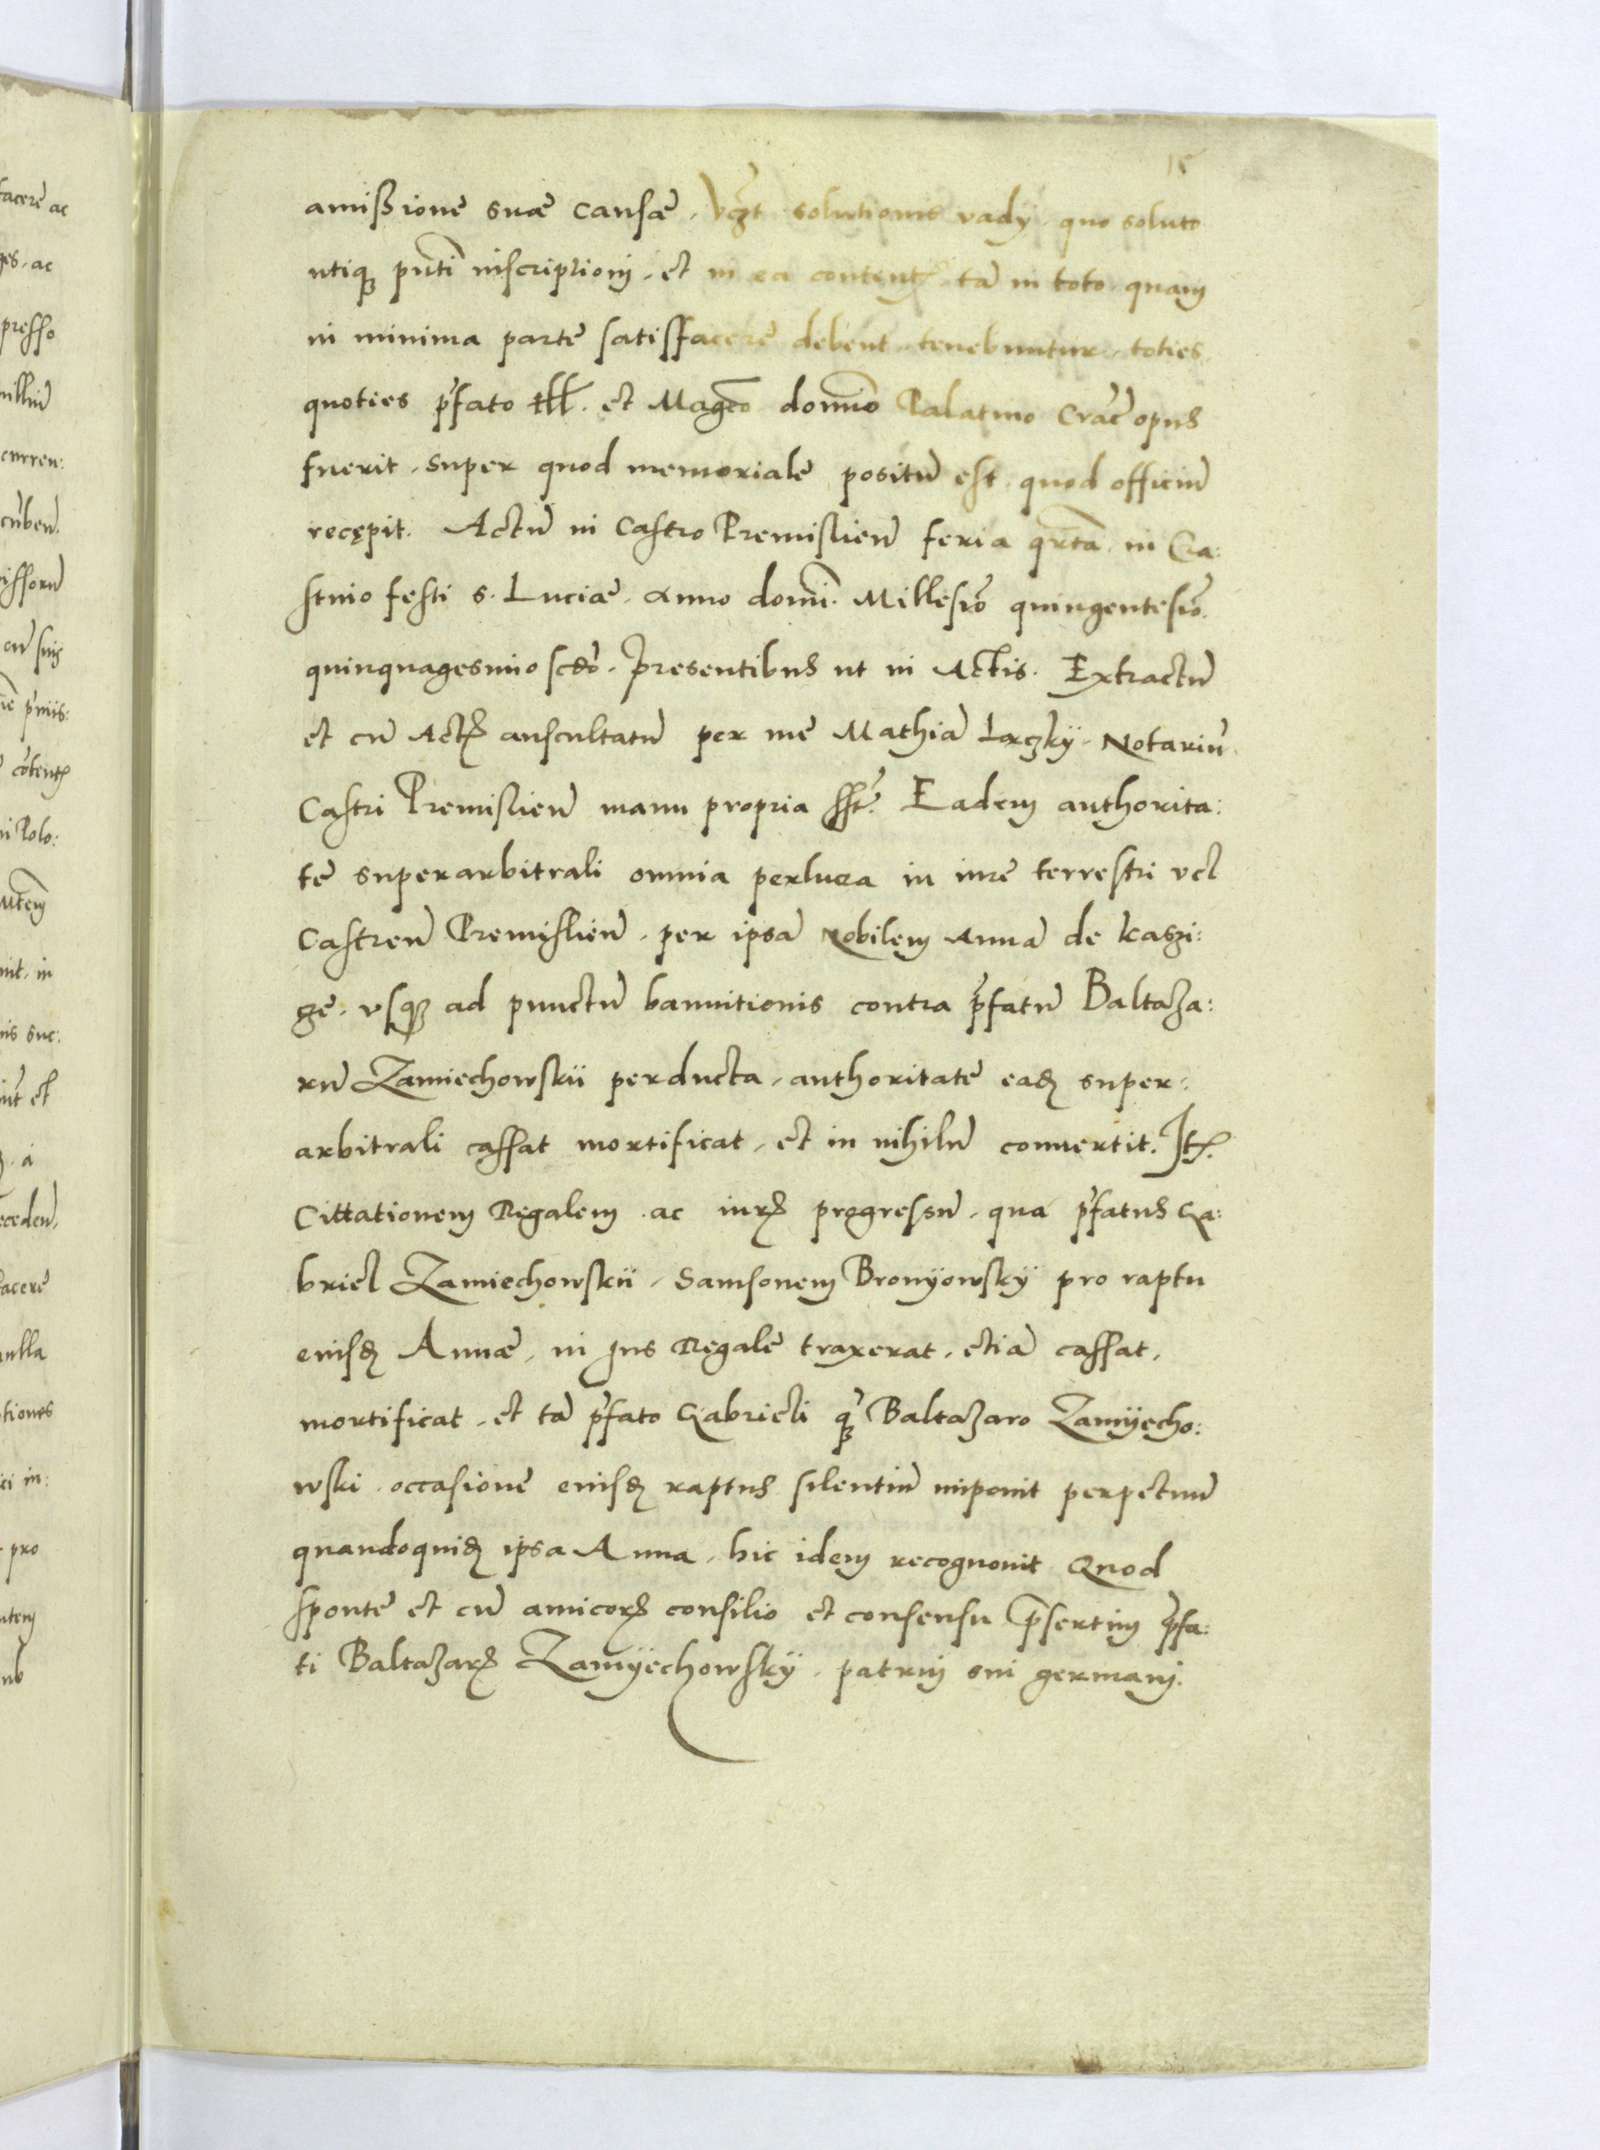 amissione suæ causæ. solutionis vadÿ. quo soluto
utiq₃ pñti inscriptioni, et in ea content. tã in toto quam
in minima parte satisfacere debent tenebuntur. toties
quoties p̃fato Ill. et Magco domño Palatino Crac̃ opus
fuerit, super quod memoriale positũ est. quod officiũ
recępit. Actũ in Castro Premislień feria qrta in Cra:
stino festi s. Luciæ. Anno domi. Millesiõ quingentesiõ.
quinquagesimo scdo. Presentibus ut in Actis. Extractũ
et cũ Act auscultatũ per me Mathiã Notariũ
Castri Premislień manu propria sst. Eadem authorita:
te superarbitrali omnia perlucra in iure terrestri vel
Castreń Premislień. per ipsã Nobilem Annã de Kaszi:
ge. usq₃ ad punctũ bannitionis contra p̃fatũ Baltaza:
rũ Zamiechowskii perducta, authoritate ead super:
arbitrali cassat mortificat, et in nihilũ convertit. It.
Cittationem Regalem ac iur progressũ. qua p̃fatus Ga:
briel Zamiechowskii, Samsonem Bronÿowskÿ pro raptu
eiusd Annæ, in Ius Regale traxerat, etiã cassat,
mortificat, et tã p̃fato Gabrieli q̃₃ Baltazaro Zamÿecho:
wski occasione eiusd raptus silentiũ imponit perpetuũ
quandoquid ipsa Anna, hic idem recognouit Quod
sponte et cũ amicor consilio et consensu p̃sertim p̃fa:
ti Baltazar Zamÿechowskÿ, patrui sui germani.